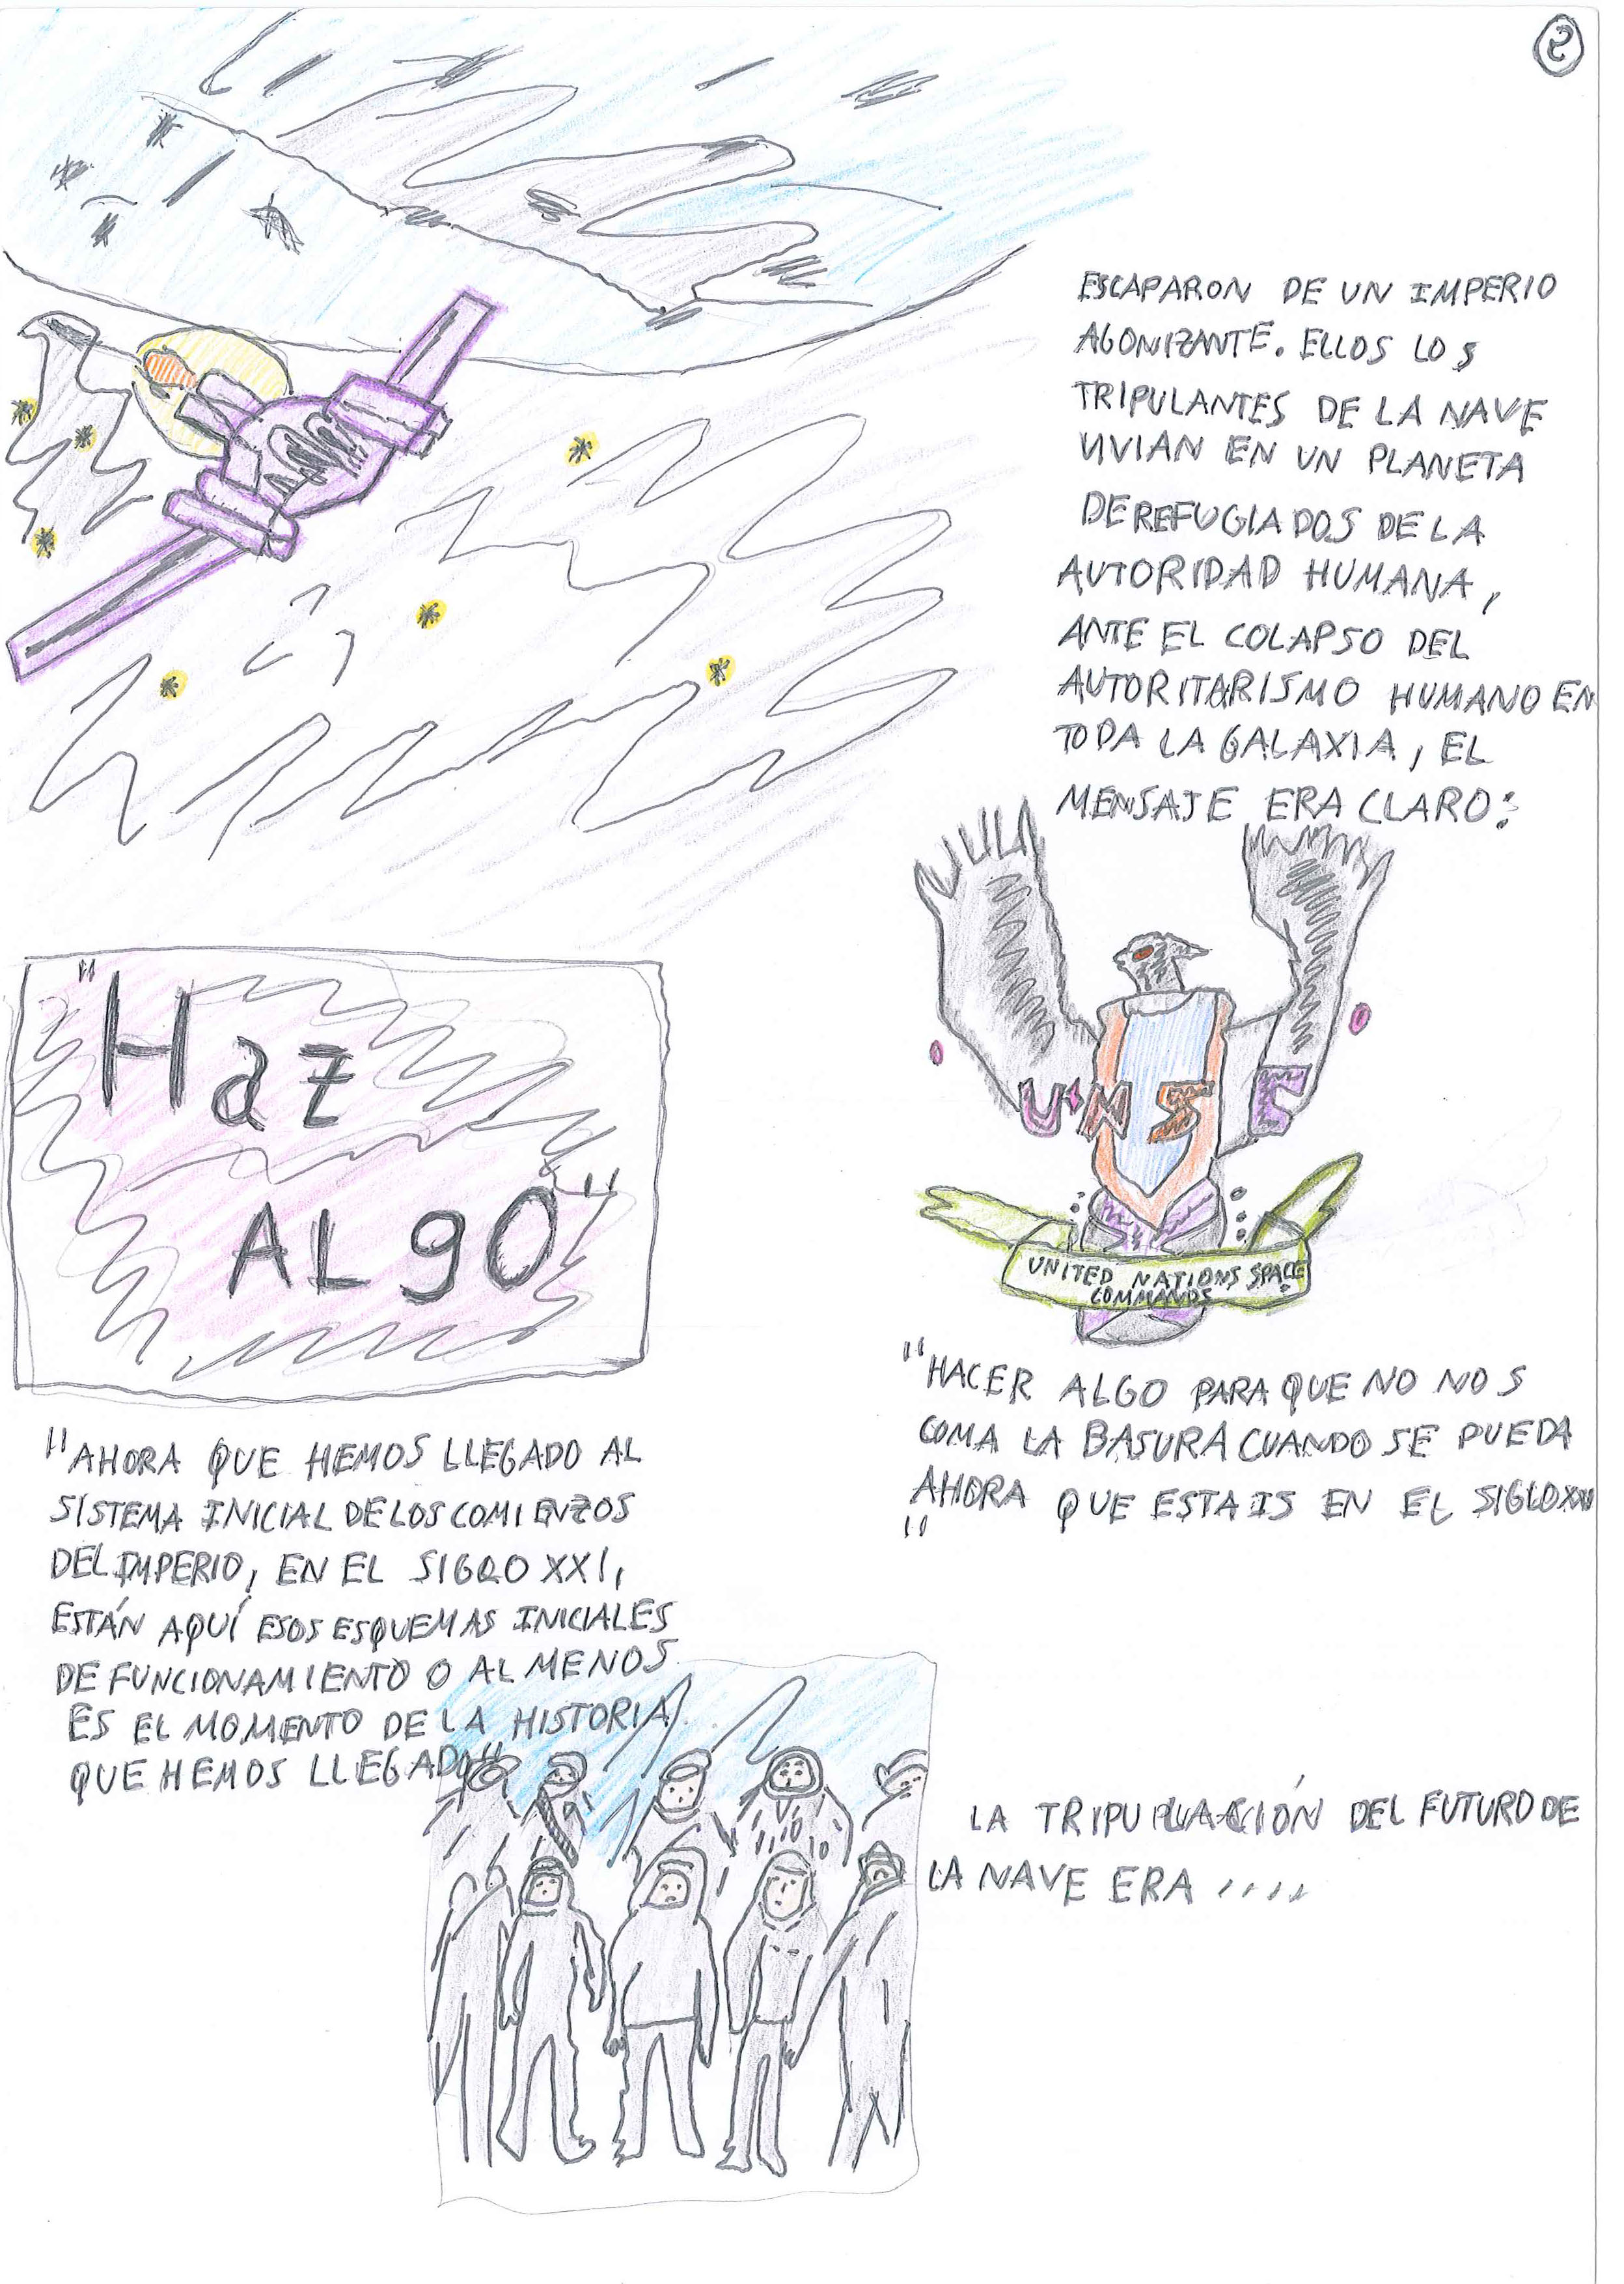 2
ESCAPARON DE UN IMPERIO
AGONIZANTE. ELLOS LOS
TRIPULANTES DE LA NAVE
VIVIAN EN UN PLANETA
DE REFUGIADOS DE LA
AUTORIDAD HUMANA,
ANTE EL COLAPSO DEL
AUTORITARISMO HUMANO EN
TODA LA GALAXIA, EL
MENSAJE ERA CLARO:
"Haz
ALgO"
UNSC
UNITED NATIONS SPACE
COMMANDS
"HACER ALGO PARA QUE NO NOS
COMA LA BASURA CUANDO SE PUEDA
AHORA QUE ESTAIS EN EL SIGLO XXI
"
"AHORA QUE HEMOS LLEGADO AL
SISTEMA INICIAL DE LOS COMIENZOS
DEL IMPERIO, EN EL SIGLO XXI,
ESTÁN AQUÍ ESOS ESQUEMAS INICIALES
DE FUNCIONAMIENTO O AL MENOS
ES EL MOMENTO DE LA HISTORIA
QUE HEMOS LLEGADO"
LA DEL FUTURO DE
LA NAVE ERA ....